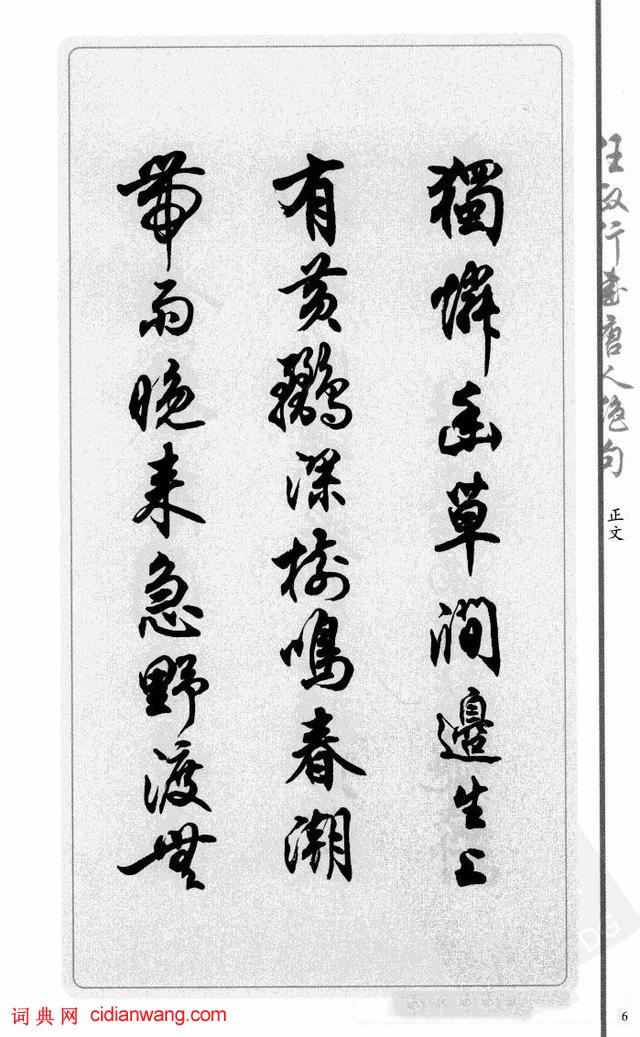 獨憐幽草澗邊生上
有黃鸝深樹鳴春潮
帶雨晚來急野渡無
任政行書唐人绝句
正文
词典网 cidianwang.com
6